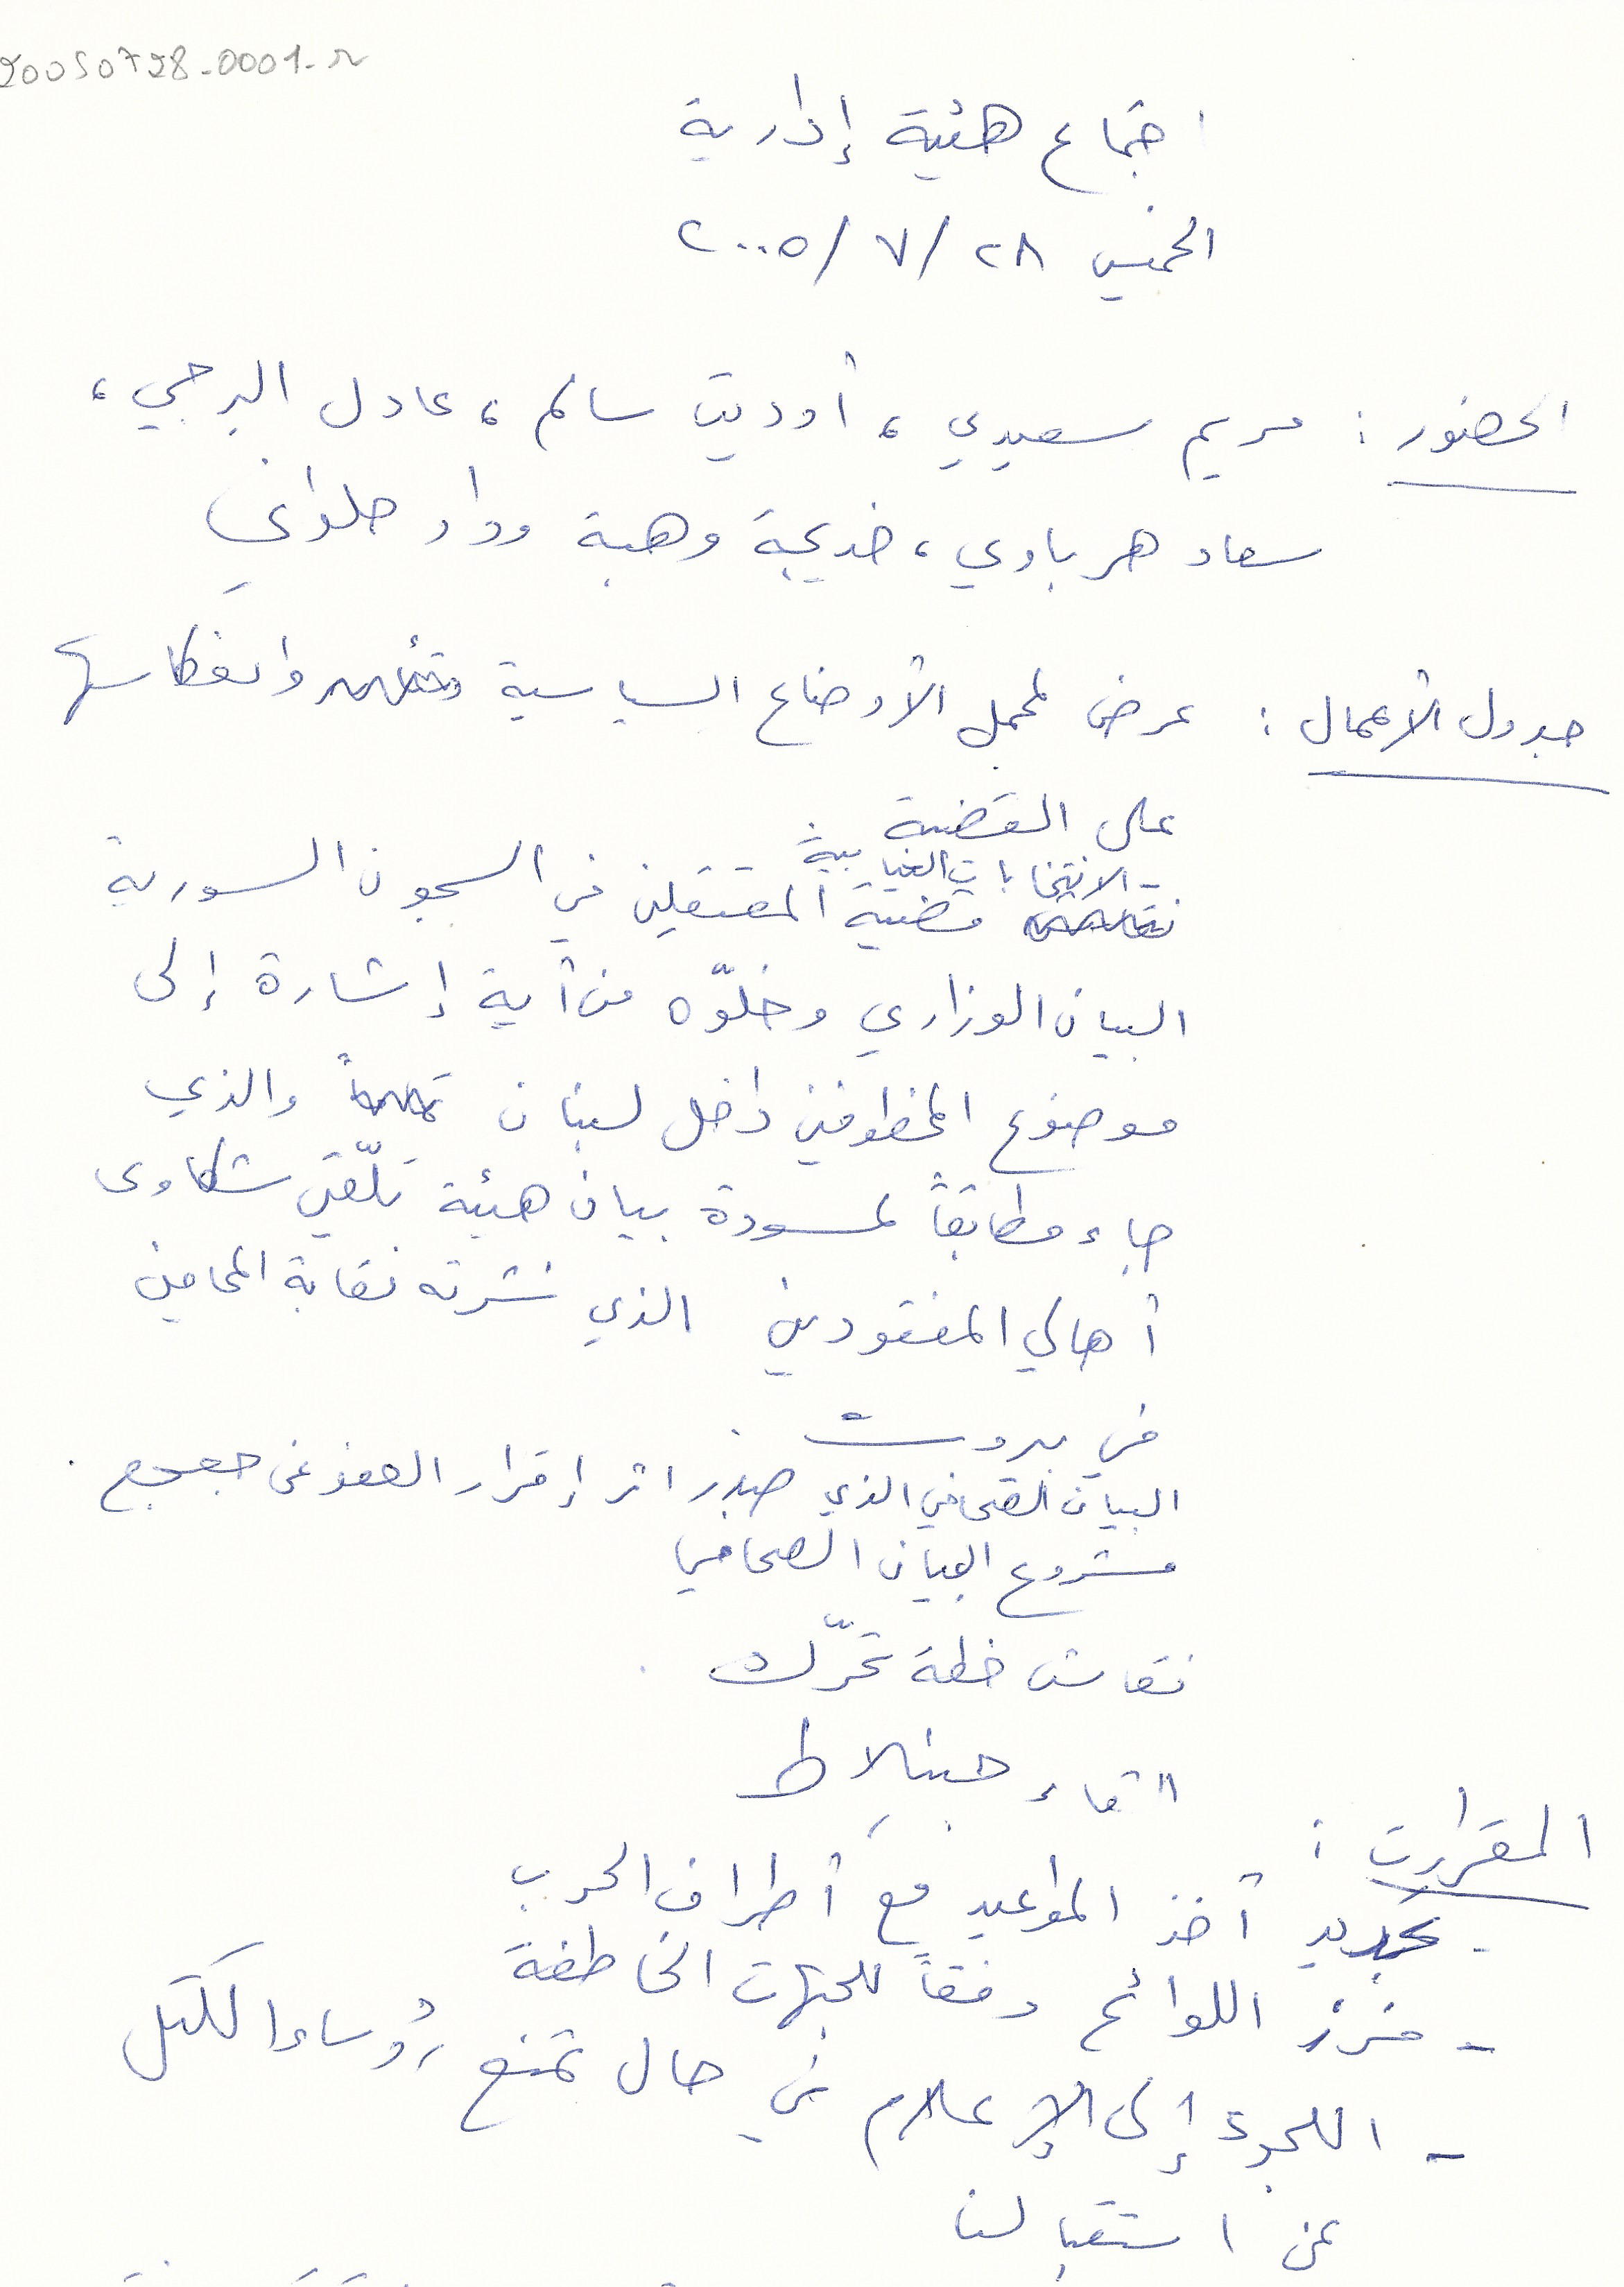 20050728-0001-r
اجتماع هيئة إدارية
الخميس ٢٨/٧/٢٠٠٥
الحضور : مريم سعيدي ، أوديت سالم ، عادل البرجي ،
سعاد هرباوي ، خديجة وهبة وداد حلواني
جدول الأعمال : عرض لمجمل الأوضاع السياسية وانعكاسها
على القضية
- الانتخابات النيابية
قضية المعتقلين في السجون السورية
البيان الوزاري وخلوّه من أية إشارة إلى
موضوع المخطوفين داخل لبنان والذي
جاء مطابقاً لمسودة بيان هيئة تلقّي شكاوى
أهالي المفقودين الذي نشرته نقابة المحامين
في بيروت
البيان الصحافي الذي صدر اثر إقرار العفو عن جعجع .
مشروع البيان الصحافي
نقاش خطة تحرّك .
لقاء جنبلاط
المقررات :
- تجديد أخذ المواعيد مع أطراف الحرب
- فرز اللوائح وفقاً للجهات الخاطفة
- اللجوء إلى الإعلام في حال تمنع رؤساء الكتل
عن استقبالنا